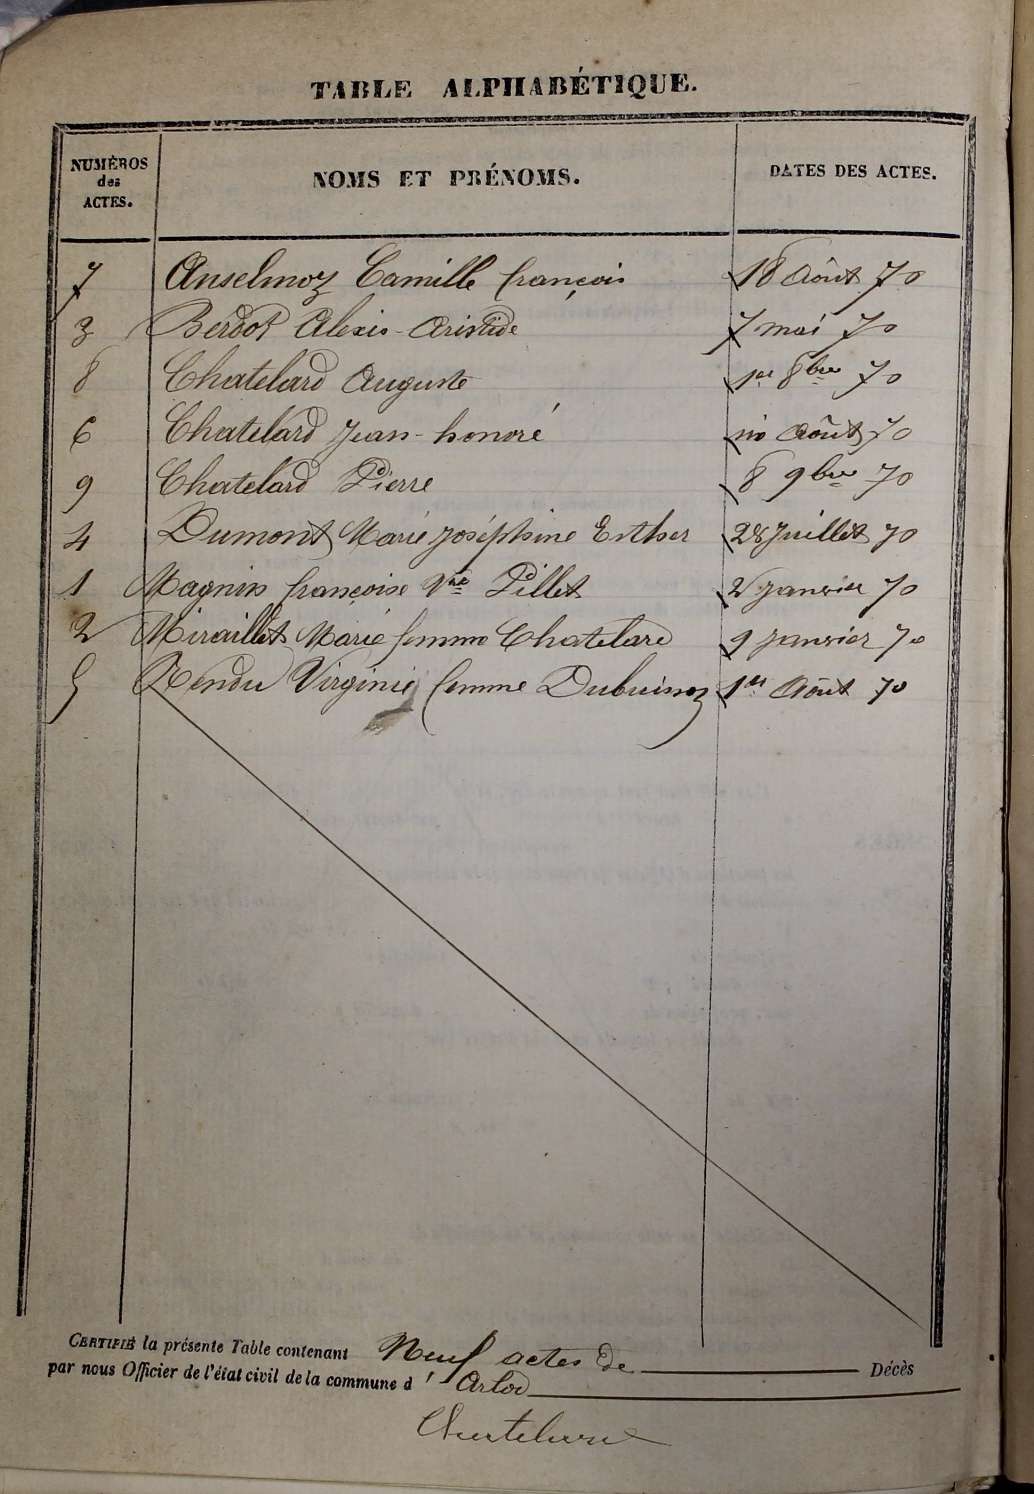 TABLE ALPHABÉTIQUE.
NUMÉROS des ACTES. NOMS ET PRÉNOMS. DATES DES ACTES.
7 Anselmoz Camille françois 18 Août 70
3 Berdot Alexis-Aristide 7 mai 70
8 Chatelard Auguste 1er 8bre 70
6 Chatelard Jean-honoré 10 Août 70
9 Chatelard Pierre 8 9bre 70
4 Dumont Marie Joséphine Esther 28 Juillet 70
1 Magnin françoise Vve Pillet 2 Janvier 70
2 Miraillet Marie femme Chatelard 9 Janvier 70
5 Rendu Virginie femme Dubuisson 1er Août 70
CERTIFIÉ la présente Table contenant Neuf actes de Décès
par nous Officier de l'état civil de la commune d' Arlod
Chatelard